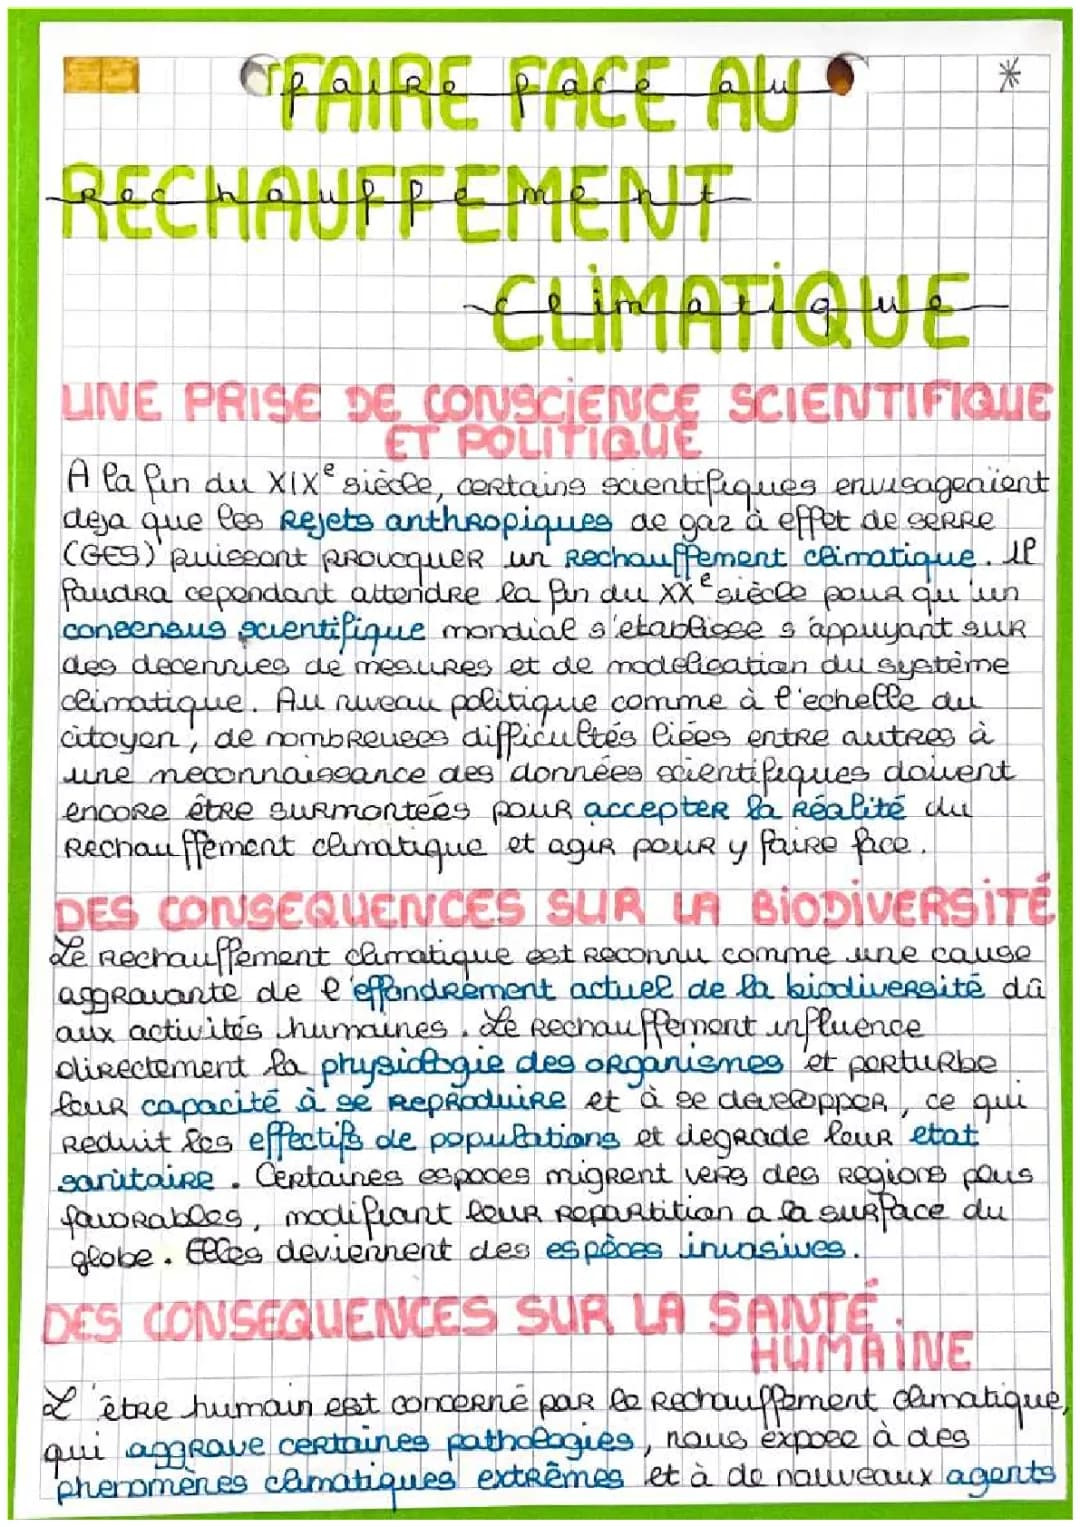 FAIRE FACE AU
faire face au
RECHAUFFEMENT
rechauffement
CLIMATIQUE
climatique
UNE PRISE DE CONSCIENCE SCIENTIFIQUE
ET POLITIQUE
A la fin du XIXe siècle, certains scientifiques envisageaient
deja que les rejets anthropiques de gaz à effet de serre
(GES) puissent provoquer un rechauffement climatique. Il
faudra cependant attendre la fin du XXe siècle pour qu'un
consensus scientifique mondial s'etablisse s'appuyant sur
des decennies de mesures et de modelisation du système
climatique. Au niveau politique comme à l'echelle du
citoyen, de nombreuses difficultés liées entre autres à
une meconnaissance des données scientifiques doivent
encore être surmontées pour accepter la réalité du
rechauffement climatique et agir pour y faire face.
DES CONSEQUENCES SUR LA BIODIVERSITÉ
Le rechauffement climatique est reconnu comme une cause
aggravante de l'effondrement actuel de la biodiversité dû
aux activités humaines. Le rechauffement influence
directement la physiologie des organismes et perturbe
leur capacité à se reproduire et à se developper, ce qui
reduit les effectifs de populations et degrade leur etat
sanitaire. Certaines especes migrent vers des regions plus
favorables, modifiant leur repartition a la surface du
globe. Elles deviennent des espèces invasives.
DES CONSEQUENCES SUR LA SANTÉ
HUMAINE
L'être humain est concerné par le rechauffement climatique,
qui aggrave certaines pathologies, nous expose à des
phenomènes climatiques extrêmes et à de nouveaux agents